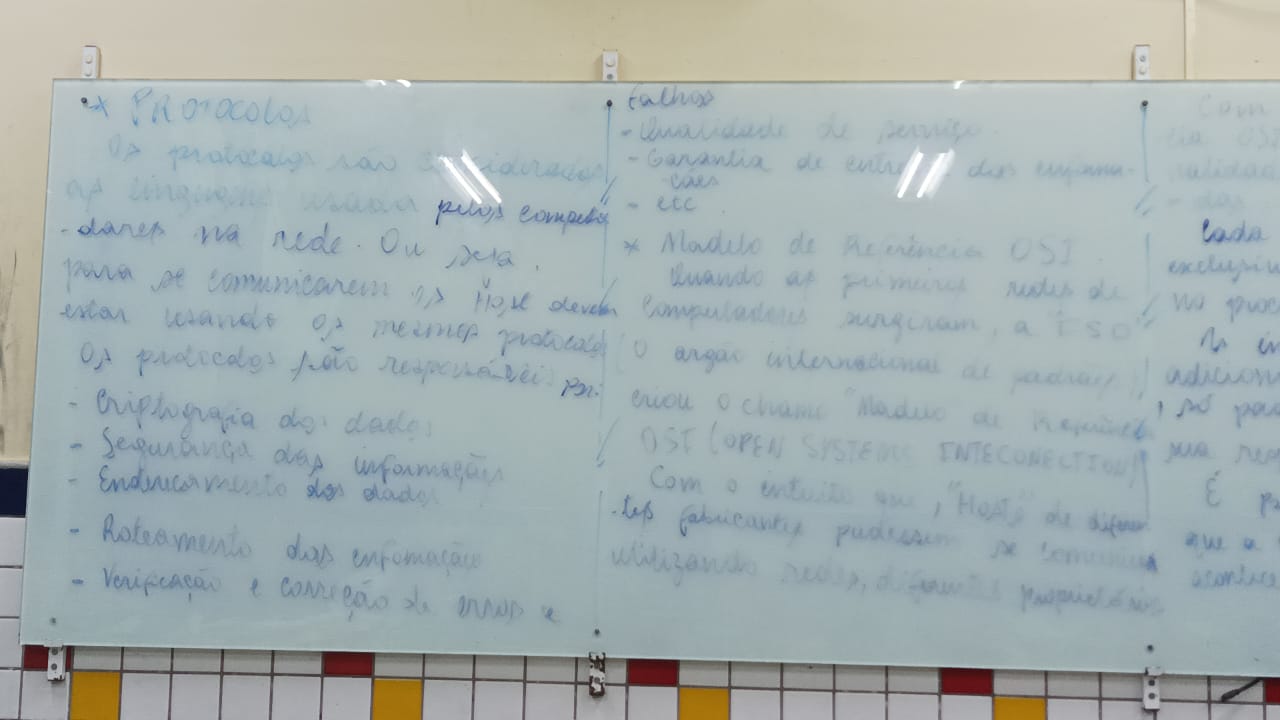 * PROTOCOLOS
Os protocolos são considerados
as linguagens usada pelos computa
-dores na rede. Ou seja,
para se comunicarem os "Host devem
estar usando os mesmos protocolos
Os protocolos são responsáveis por:
- Criptografia dos dados
- Segurança das informações
- Endereçamento dos dados
- Roteamento das enfomação
- Verificação e correção de erros e
falhas
- Qualidade de serviço.
- Garantia de entrega das enforma-
-ções
- etc
* Modelo de Referência OSI
Quando as primeiras redes de
Computadores surgiram, a "ISO"
O orgão internacional de padrões
criou o chamo "Modelo de Referência
OSI (OPEN SYSTEMS INTECONECTION)
Com o intuito que, "Hosts" de diferen
-tes fabricantes pudessem se comunica
utilizando redes, diferentes proprietários
Com
cia OSI
- das
Cada
exclusiv
no proc
As in
adicion
, só pa
sua re
É p
que a
acontece